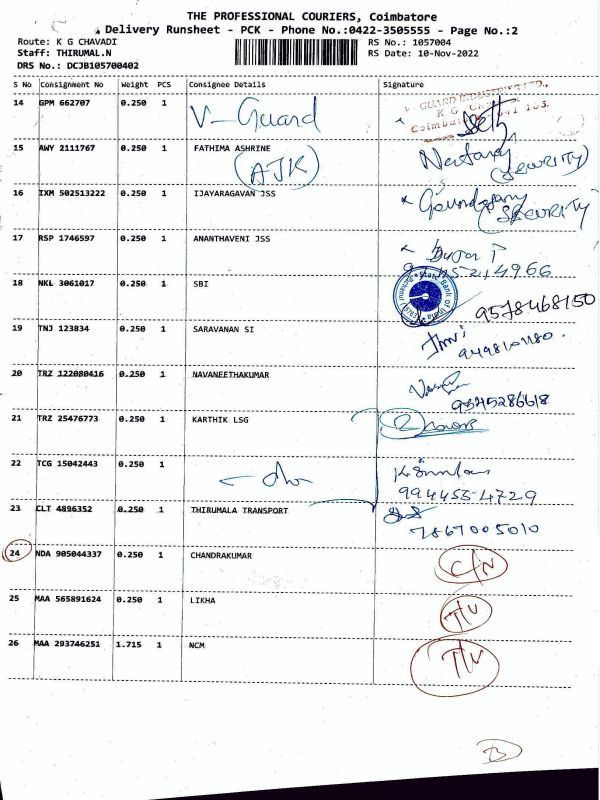 THE PROFESSIONAL COURIERS, Coimbatore
Delivery Runsheet - PCK - Phone No.:0422-3505555 - Page No.:2
Route: K G CHAVADI RS No.: 1057004
Staff: THIRUMAL.N RS Date: 10-Nov-2022
DRS No.: DCJB105700402
S No Consignment No Weight PCS Consignee Details Signature
14 GPM 662707 0.250 1 V-Guard
15 AWY 2111767 0.250 1 FATHIMA ASHRINE
(AJK) (SECURITY)
16 IXM 502513222 0.250 1 IJAYARAGAVAN JSS
(SECURITY)
17 RSP 1746597 0.250 1 ANANTHAVENI JSS
18 NKL 3061017 0.250 1 SBI State Bank of India
9578468150
19 TNJ 123834 0.250 1 SARAVANAN SI
20 TRZ 122080416 0.250 1 NAVANEETHAKUMAR
9345286618
21 TRZ 25476773 0.250 1 KARTHIK LSG
22 TCG 15042443 0.250 1
9944554729
23 CLT 4896352 0.250 1 THIRUMALA TRANSPORT
7867005010
24 NDA 905044337 0.250 1 CHANDRAKUMAR C/N
25 MAA 565891624 0.250 1 LIKHA
26 MAA 293746251 1.715 1 NCM